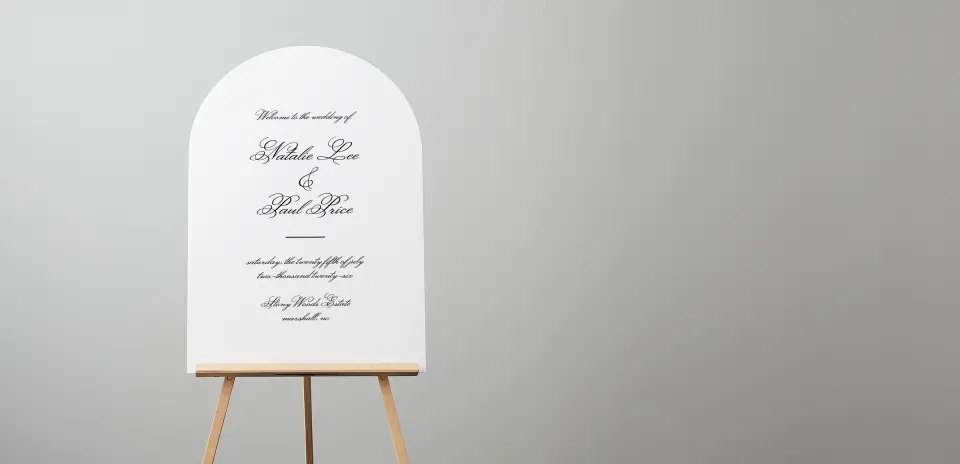 Welcome to the wedding of
Natalie Lee
&
Paul Price
saturday, the twenty fifth of july
two-thousand twenty-six
Stony Woods Estate
marshall, nc